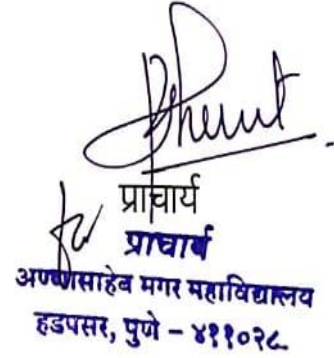 प्राचार्य
for
प्राचार्य
अण्णासाहेब मगर महाविद्यालय
हडपसर, पुणे – ४११०२८